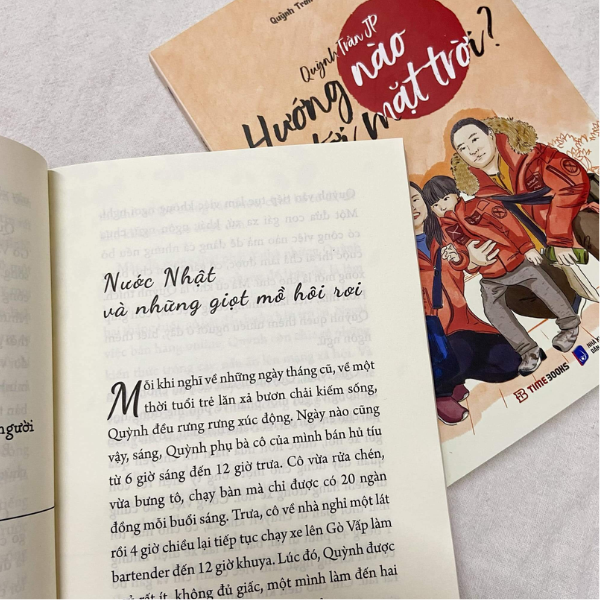 Quỳnh Trần JP
Hướng nào
mặt trời?
TIMEBOOKS
người
Nước Nhật
và những giọt mồ hôi rơi
Mỗi khi nghĩ về những ngày tháng cũ, về một
thời tuổi trẻ lăn xả bươn chải kiếm sống,
Quỳnh đều rưng rưng xúc động. Ngày nào cũng
vậy, sáng, Quỳnh phụ bà cô của mình bán hủ tíu
từ 6 giờ sáng đến 12 giờ trưa. Cô vừa rửa chén,
vừa bưng tô, chạy bàn mà chỉ được có 20 ngàn
đồng mỗi buổi sáng. Trưa, cô về nhà nghỉ một lát
rồi 4 giờ chiều lại tiếp tục chạy xe lên Gò Vấp làm
bartender đến 12 giờ khuya. Lúc đó, Quỳnh được
rất ít, không đủ giấc, một mình làm đến hai